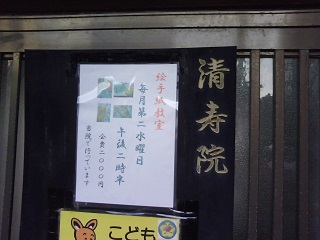 清寿院
絵手紙教室
毎月第二水曜日
午後二時半
会費二〇〇〇円
書院で待っています
こども